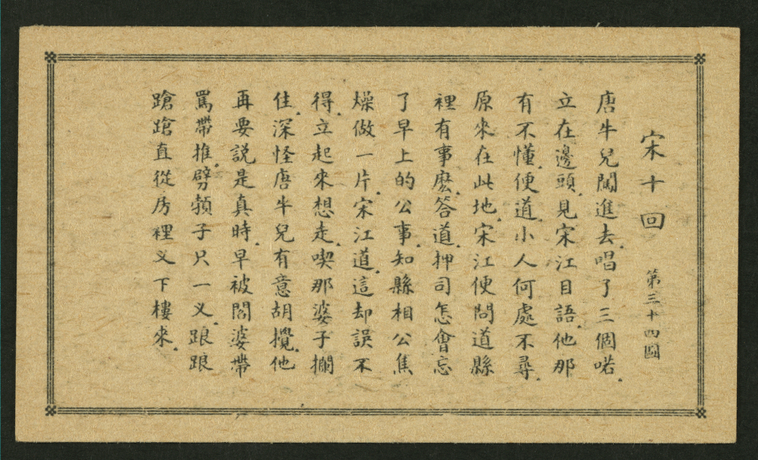 宋十回 第三十四圖
唐牛兒闖進去.唱了三個喏.
立在邊頭.見宋江目語.他那
有不懂.便道.小人何處不尋.
原來在此地.宋江便問道縣
裡有事麽.答道.押司怎會忘
了早上的公事.知縣相公焦
燥做一片.宋江道.這却誤不
得.立起來想走.喫那婆子搁
住.深怪唐牛兒有意胡攪.他
再要説是真時.早被閻婆帶
罵帶推.劈頷子只一义.踉踉
蹌蹌直從房裡义下樓來.